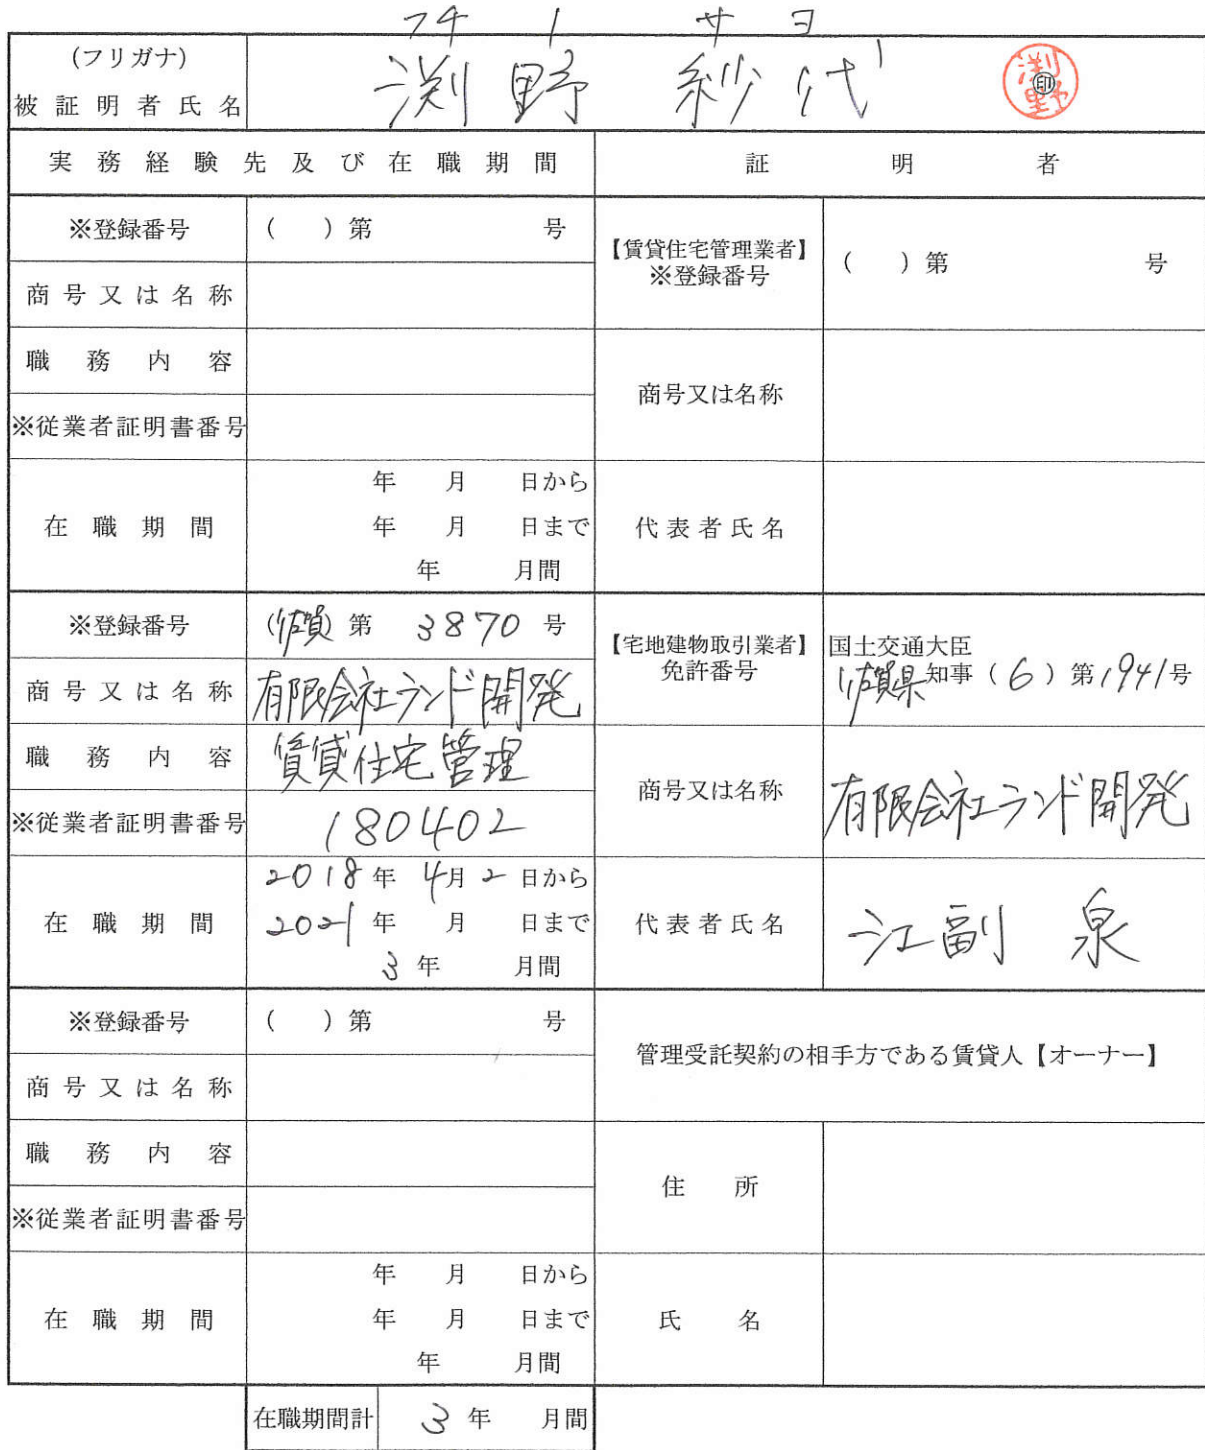 フチノ サヨ
(フリガナ)
被証明者氏名 渕野 紗代 渕野 ㊞
実務経験先及び在職期間 証明者
※登録番号 ( )第 号
商号又は名称
職務内容
※従業者証明書番号
在職期間 年 月 日から
年 月 日まで
年 月間
【賃貸住宅管理業者】
※登録番号 ( )第 号
商号又は名称
代表者氏名
※登録番号 (佐賀)第 3870 号
商号又は名称 有限会社ランド開発
職務内容 賃貸住宅管理
※従業者証明書番号 180402
在職期間 2018年 4月 2日から
2021年 月 日まで
3年 月間
【宅地建物取引業者】
免許番号
国土交通大臣
佐賀県知事(6)第1941号
商号又は名称 有限会社ランド開発
代表者氏名 江副 泉
※登録番号 ( )第 号
商号又は名称
職務内容
※従業者証明書番号
在職期間 年 月 日から
年 月 日まで
年 月間
管理受託契約の相手方である賃貸人【オーナー】
住所
氏名
在職期間計 3年 月間